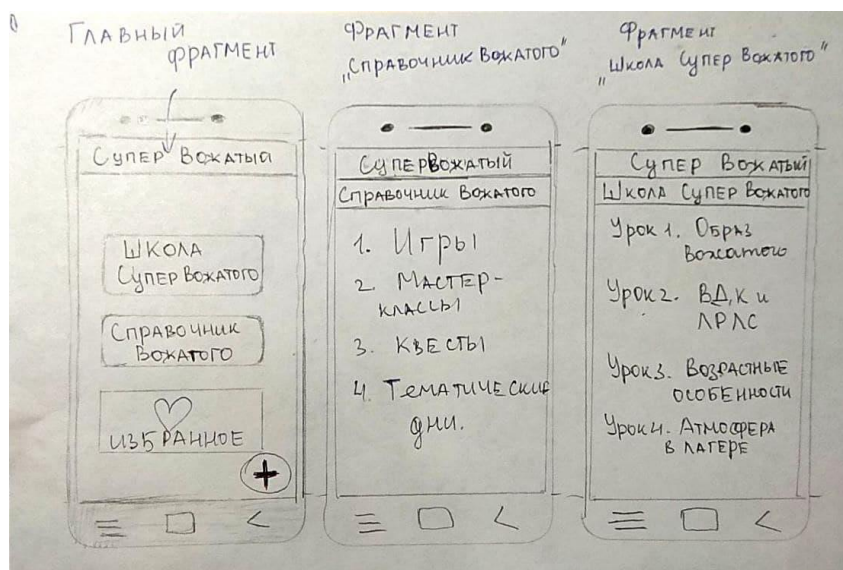 Главный
фрагмент
Супер Вожатый
Школа
Супер Вожатого
Справочник
Вожатого
Избранное
Фрагмент
„Справочник Вожатого"
СуперВожатый
Справочник Вожатого
1. Игры
2. Мастер-
классы
3. Квесты
4. Тематические
дни.
Фрагмент
"Школа Супер Вожатого"
Супер Вожатый
Школа Супер Вожатого
Урок 1. Образ
вожатого
Урок 2. ВД, К и
ЛРЛС
Урок 3. Возрастные
особенности
Урок 4. Атмосфера
в лагере